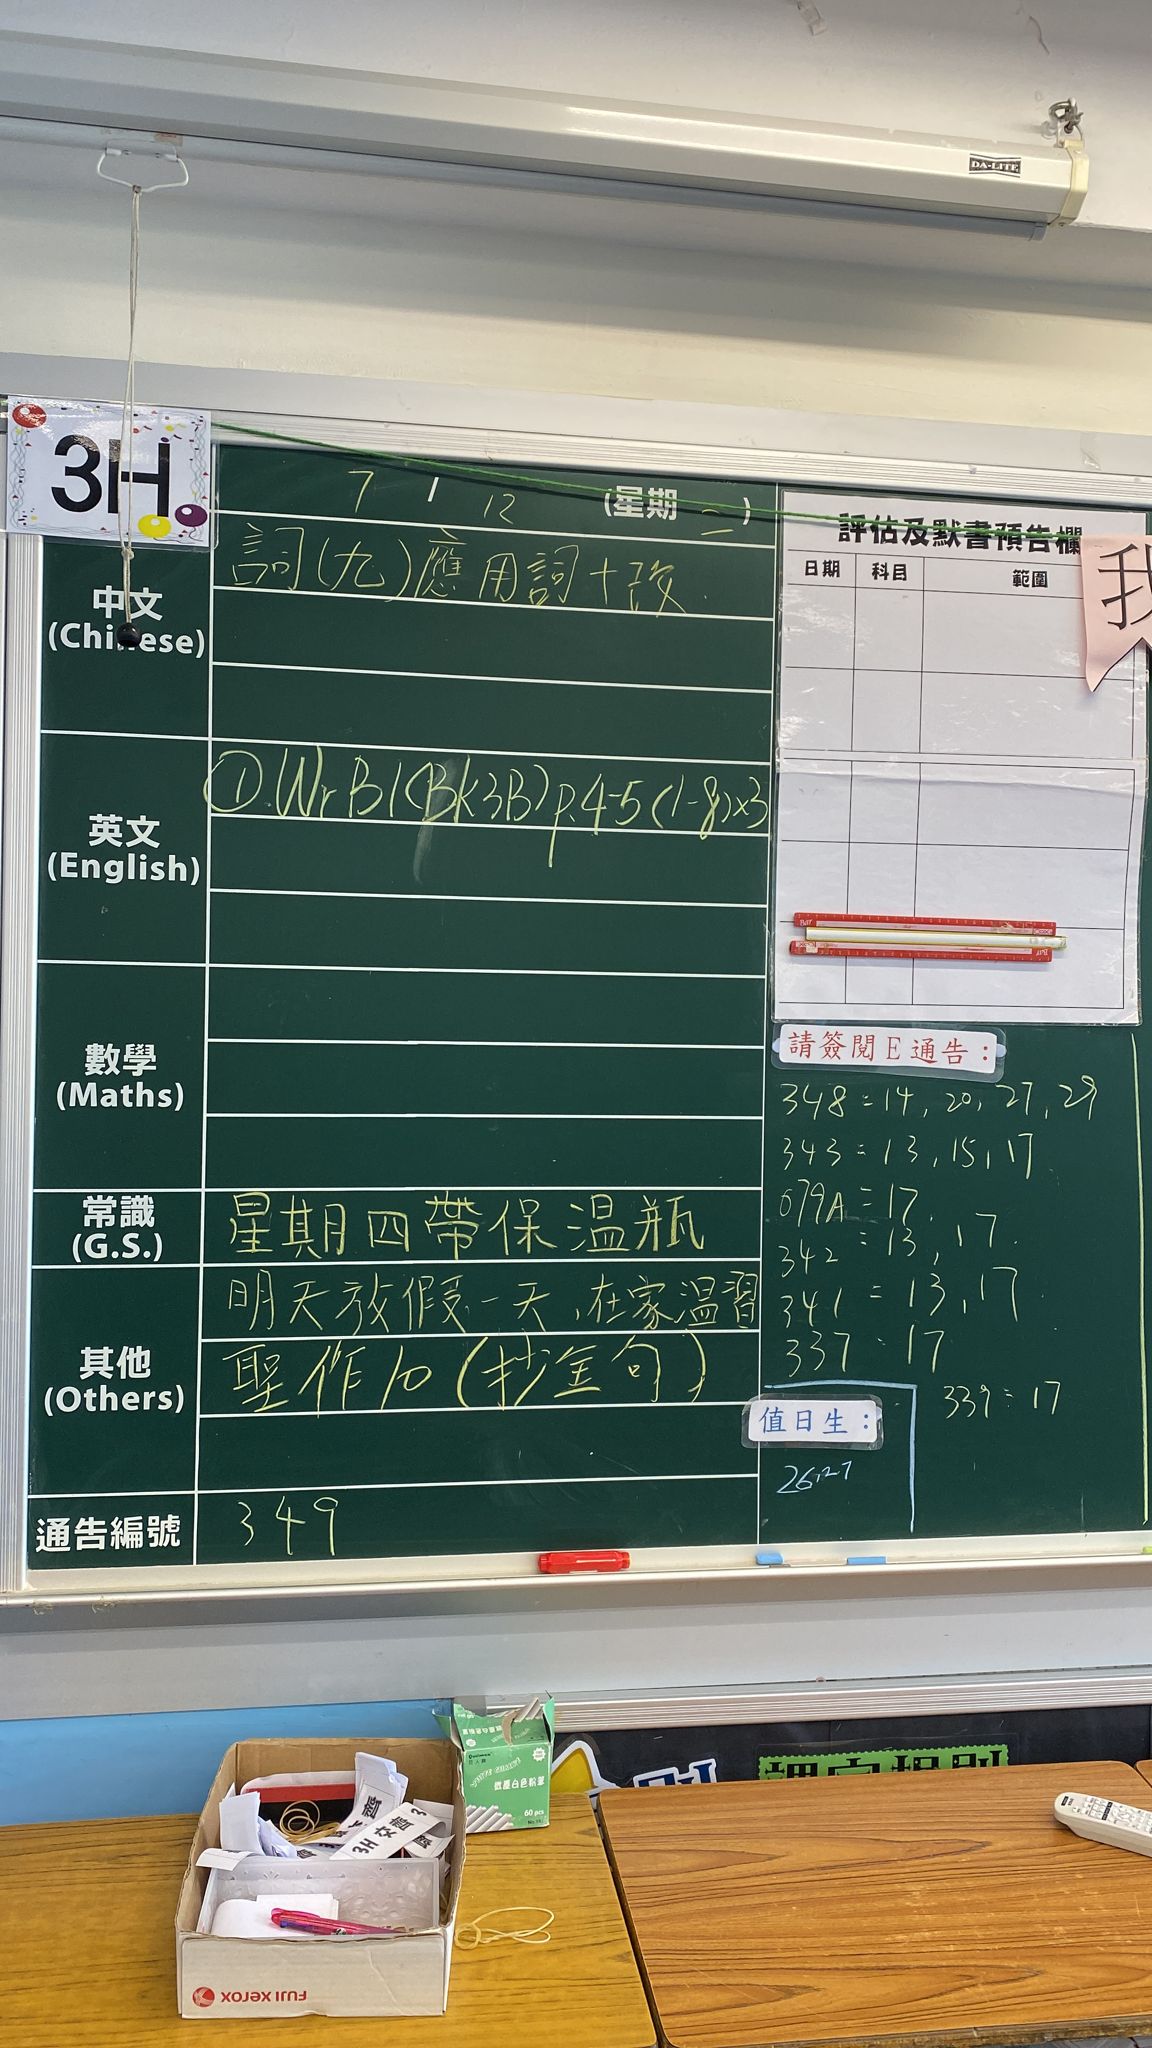 DA-LITE
3H
7 / 12 (星期 二 )
中文
(Chinese)
詞(九)應用詞+改
英文
(English)
① Wr B1(Bk3B) p.4-5 (1-8)x3
數學
(Maths)
常識
(G.S.)
星期四帶保温瓶
其他
(Others)
明天放假一天,在家温習
聖作10(抄金句)
通告編號
349
評估及默書預告欄
日期 科目 範圍
我
請簽閱E通告:
348=14, 20, 27, 29
343=13, 15, 17
079A=17
342=13, 17
341=13, 17
337=17
339=17
值日生:
26,27
微塵白色粉筆
60 pcs
3H 交齊
FUJI XEROX